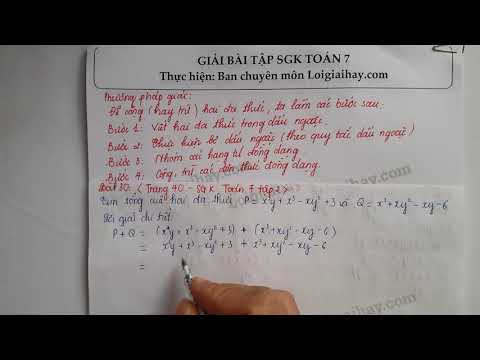 GIẢI BÀI TẬP SGK TOÁN 7
Thực hiện: Ban chuyên môn Loigiaihay.com
Phương pháp giải:
Để cộng (hay trừ) hai đa thức, ta làm các bước sau:
Bước 1: Viết hai đa thức trong dấu ngoặc.
Bước 2: Thực hiện bỏ dấu ngoặc (theo quy tắc dấu ngoặc)
Bước 3: Nhóm các hạng tử đồng dạng
Bước 4: Cộng, trừ các đơn thức đồng dạng.
Bài 30: (Trang 40 - SGK Toán 7 tập 2)
Tính tổng của hai đa thức P = x²y + x³ - xy² + 3 và Q = x³ + xy² - xy - 6
Lời giải chi tiết
P + Q = (x²y + x³ - xy² + 3) + (x³ + xy² - xy - 6)
= x²y + x³ - xy² + 3 + x³ + xy² - xy - 6
=